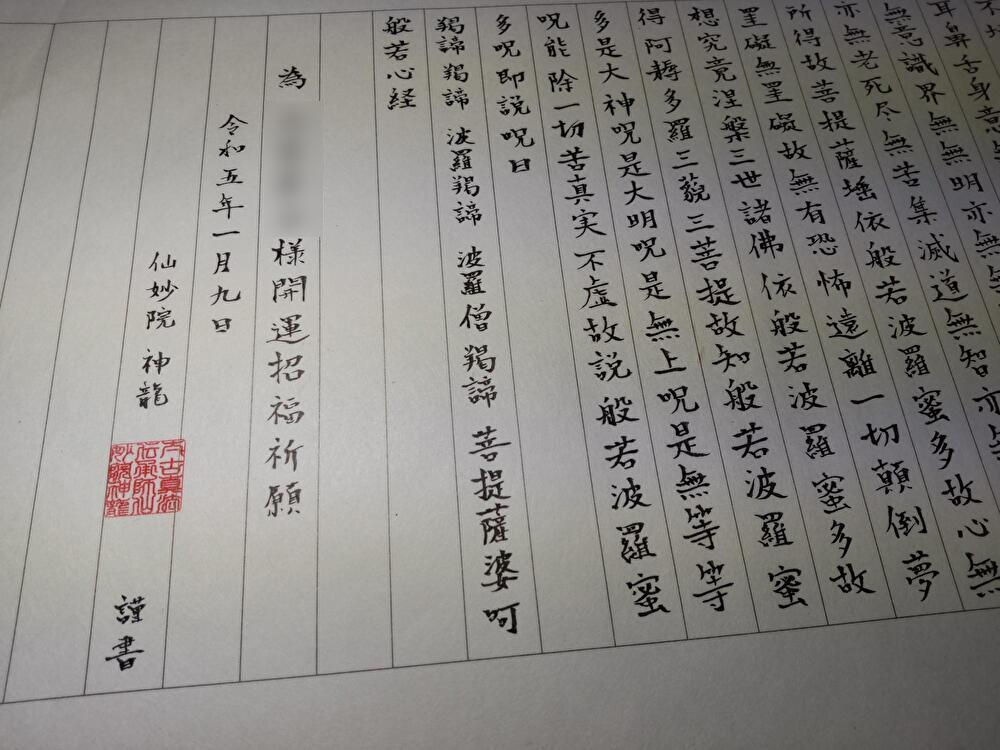 耳鼻舌身意
無意識界無無明亦無
亦無老死尽無苦集滅道無智亦
所得故菩提薩埵依般若波羅蜜多故心無
罣礙無罣礙故無有恐怖遠離一切顛倒夢
想究竟涅槃三世諸佛依般若波羅蜜多故
得阿耨多羅三藐三菩提故知般若波羅蜜
多是大神呪是大明呪是無上呪是無等等
呪能除一切苦真実不虚故説般若波羅蜜
多呪即説呪曰
羯諦羯諦 波羅羯諦 波羅僧羯諦 菩提薩婆呵
般若心経
為 様開運招福祈願
令和五年一月九日
仙妙院 神龍
伝承師仙
妙院神龍
謹書